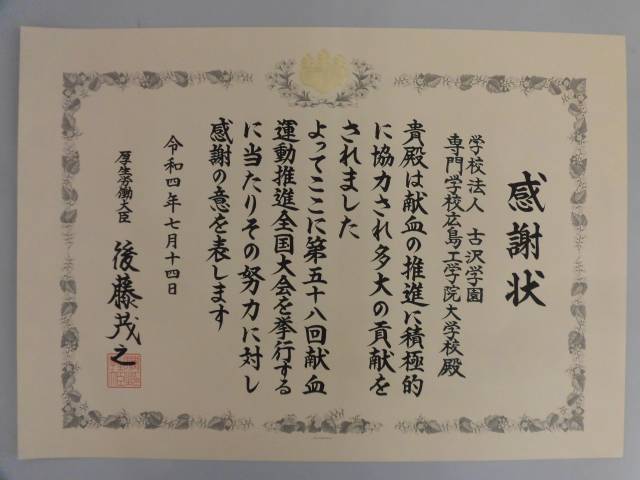 感謝状
学校法人 古沢学園
専門学校広島工学院大学校殿
貴殿は献血の推進に積極的
に協力され多大の貢献を
されました
よってここに第五十八回献血
運動推進全国大会を挙行する
に当たりその努力に対し
感謝の意を表します
令和四年七月十四日
厚生労働大臣 後藤茂之